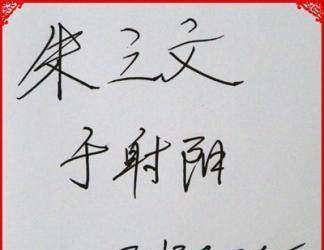 朱立文
于射阳